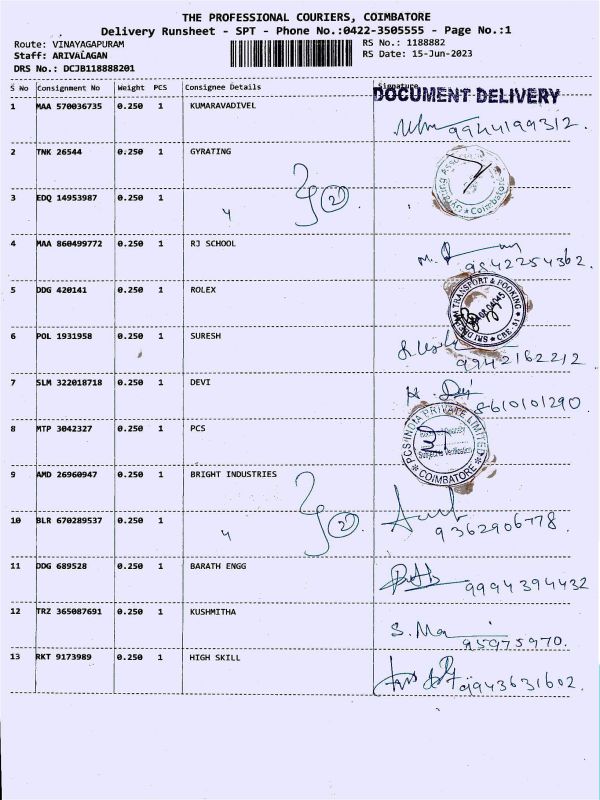 THE PROFESSIONAL COURIERS, COIMBATORE
Delivery Runsheet - SPT - Phone No.:0422-3505555 - Page No.:1
Route: VINAYAGAPURAM RS No.: 1188882
Staff: ARIVALAGAN RS Date: 15-Jun-2023
DRS No.: DCJB118888201
S No Consignment No Weight PCS Consignee Details Signature
DOCUMENT DELIVERY
1 MAA 570036735 0.250 1 KUMARAVADIVEL
9944199312.
2 TNK 26544 0.250 1 GYRATING
Coimbatore
3 EDQ 14953987 0.250 1 〃 2
4 MAA 860499772 0.250 1 RJ SCHOOL
9842254362.
5 DDG 420141 0.250 1 ROLEX
TRANSPORT & BOOKING
CBE-51
6 POL 1931958 0.250 1 SURESH
9942162212
7 SLM 322018718 0.250 1 DEVI
8610101290.
8 MTP 3042327 0.250 1 PCS
PCS INDIA PRIVATE LIMITED
Subject to Verification
COIMBATORE
9 AMD 26960947 0.250 1 BRIGHT INDUSTRIES
10 BLR 670289537 0.250 1 〃 2
9362906778.
11 DDG 689528 0.250 1 BARATH ENGG
9994394432
12 TRZ 365087691 0.250 1 KUSHMITHA
S. Ma
95975970.
13 RKT 9173989 0.250 1 HIGH SKILL
9943631602.